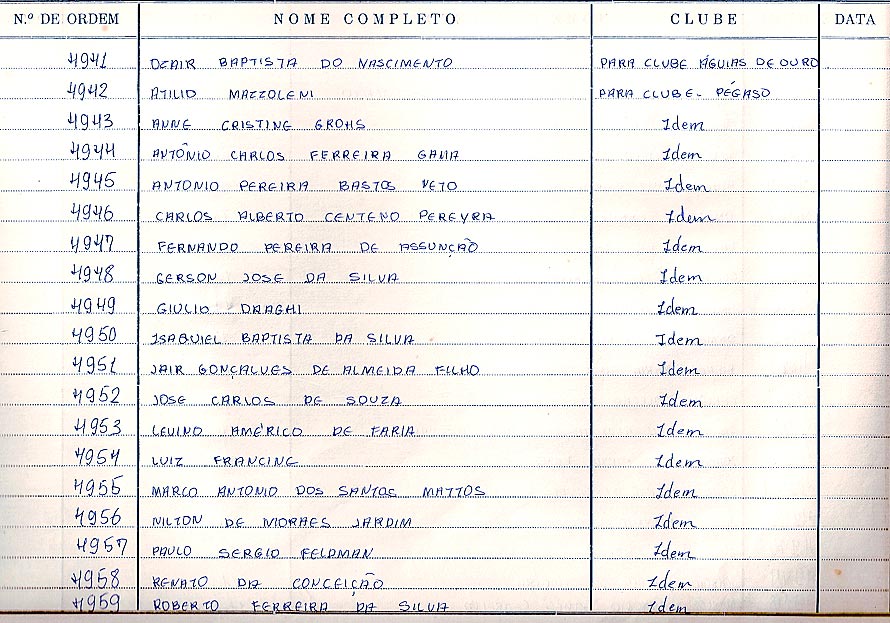 N.º DE ORDEM NOME COMPLETO CLUBE DATA
4941 DEAIR BAPTISTA DO NASCIMENTO PARA CLUBE ÁGUIAS DE OURO
4942 ATILIO MAZZOLENI PARA CLUBE - PÉGASO
4943 ANNE CRISTINE GROHS Idem
4944 ANTÔNIO CARLOS FERREIRA GAMA Idem
4945 ANTONIO PEREIRA BASTOS NETO Idem
4946 CARLOS ALBERTO CENTENO PEREYRA Idem
4947 FERNANDO PEREIRA DE ASSUNÇÃO Idem
4948 GERSON JOSE DA SILVA Idem
4949 GIULIO DRAGHI Idem
4950 ISAQUIEL BAPTISTA DA SILVA Idem
4951 JAIR GONÇALVES DE ALMEIDA FILHO Idem
4952 JOSE CARLOS DE SOUZA Idem
4953 LEVINO AMÉRICO DE FARIA Idem
4954 LUIZ FRANCINE Idem
4955 MARCO ANTONIO DOS SANTOS MATTOS Idem
4956 NILTON DE MORAES JARDIM Idem
4957 PAULO SERGIO FELDMAN Idem
4958 RENATO DA CONCEIÇÃO Idem
4959 ROBERTO FERREIRA DA SILVA Idem